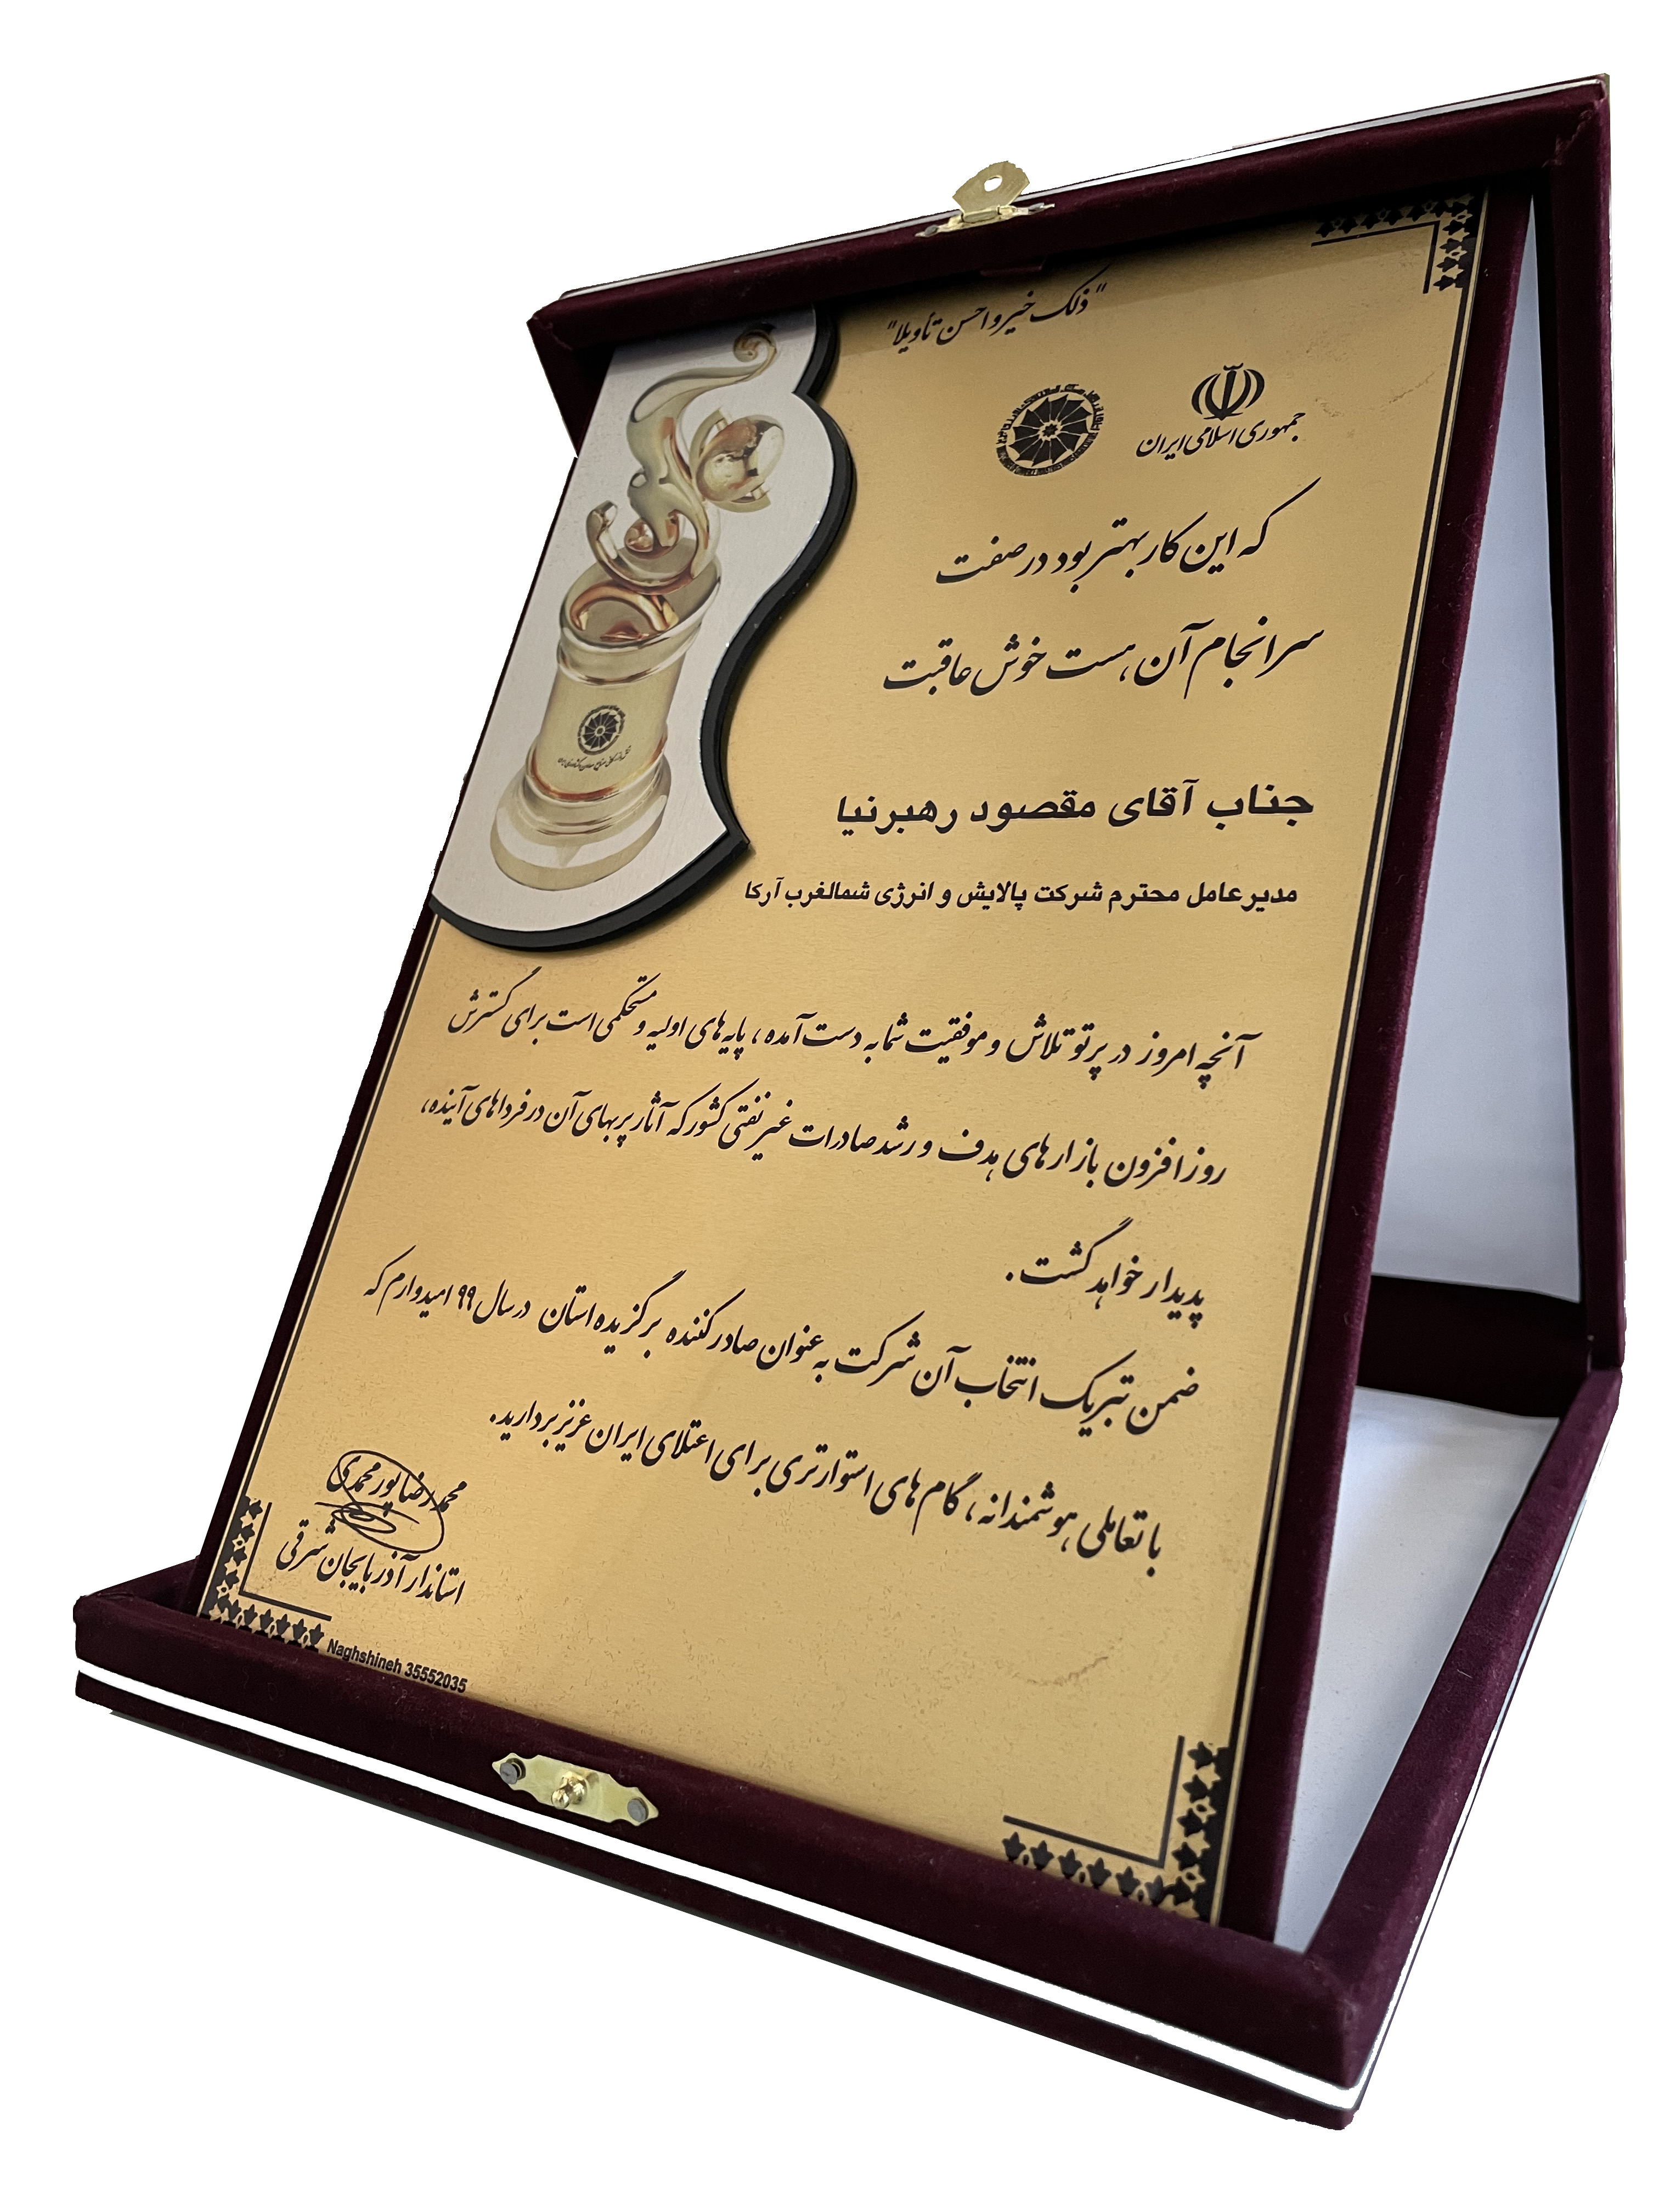 "ذلک خیر و احسن تأویلا"
جمهوری اسلامی ایران
که این کار بهتر بود در صفت
سرانجام آن هست خوش عاقبت
جناب آقای مقصود رهبرنیا
مدیرعامل محترم شرکت پالایش و انرژی شمالغرب آرکا
آنچه امروز در پرتو تلاش و موفقیت شما به دست آمده، پایه‌های اولیه و مستحکمی است برای گسترش
روزافزون بازارهای هدف و رشد صادرات غیرنفتی کشور که آثار پربهای آن در فرداهای آینده،
پدیدار خواهد گشت.
ضمن تبریک انتخاب آن شرکت به عنوان صادرکننده برگزیده استان در سال ۹۹ امیدوارم که
با تعاملی هوشمندانه، گام‌های استوارتری برای اعتلای ایران عزیز بردارید.
محمدرضا پورمحمدی
استاندار آذربایجان شرقی
Naghshineh 35552035